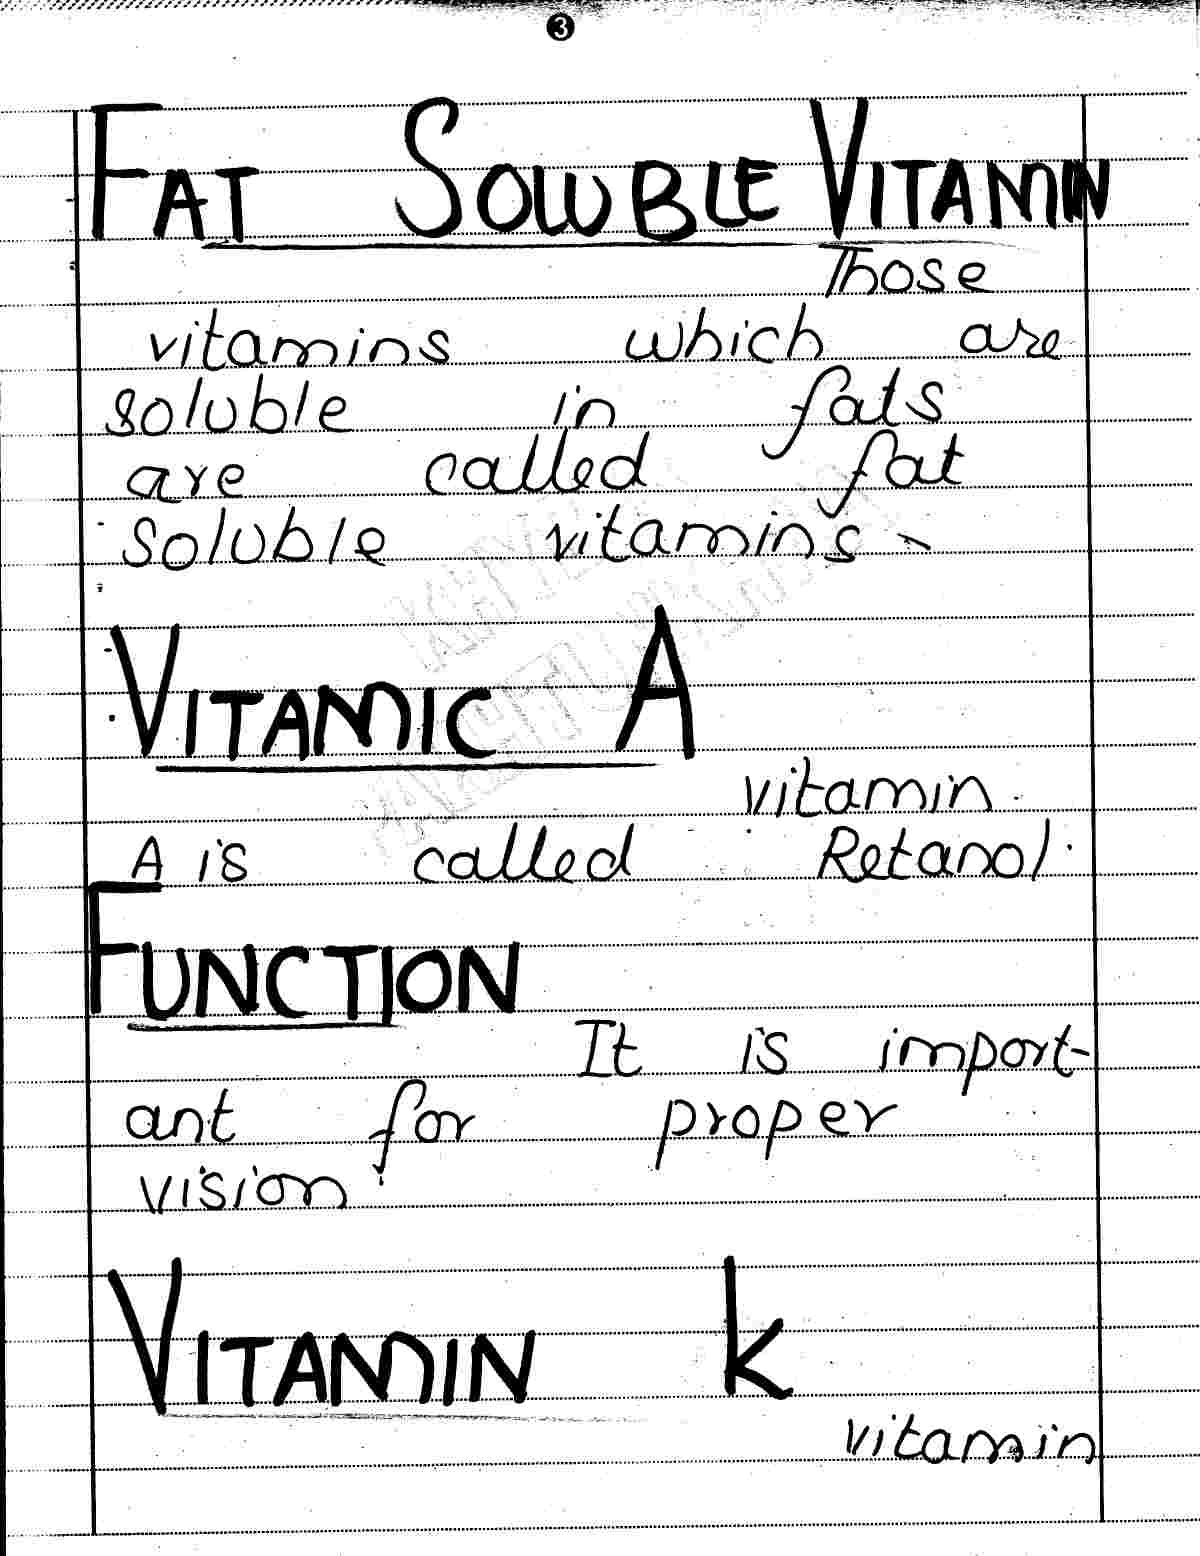 3
FAT SOLUBLE VITAMIN
Those
vitamins which are
soluble in fats
are called fat
soluble vitamins-
VITAMIC A
vitamin.
A is called Retanol.
FUNCTION
It is import-
ant for proper
vision.
VITAMIN k
vitamin